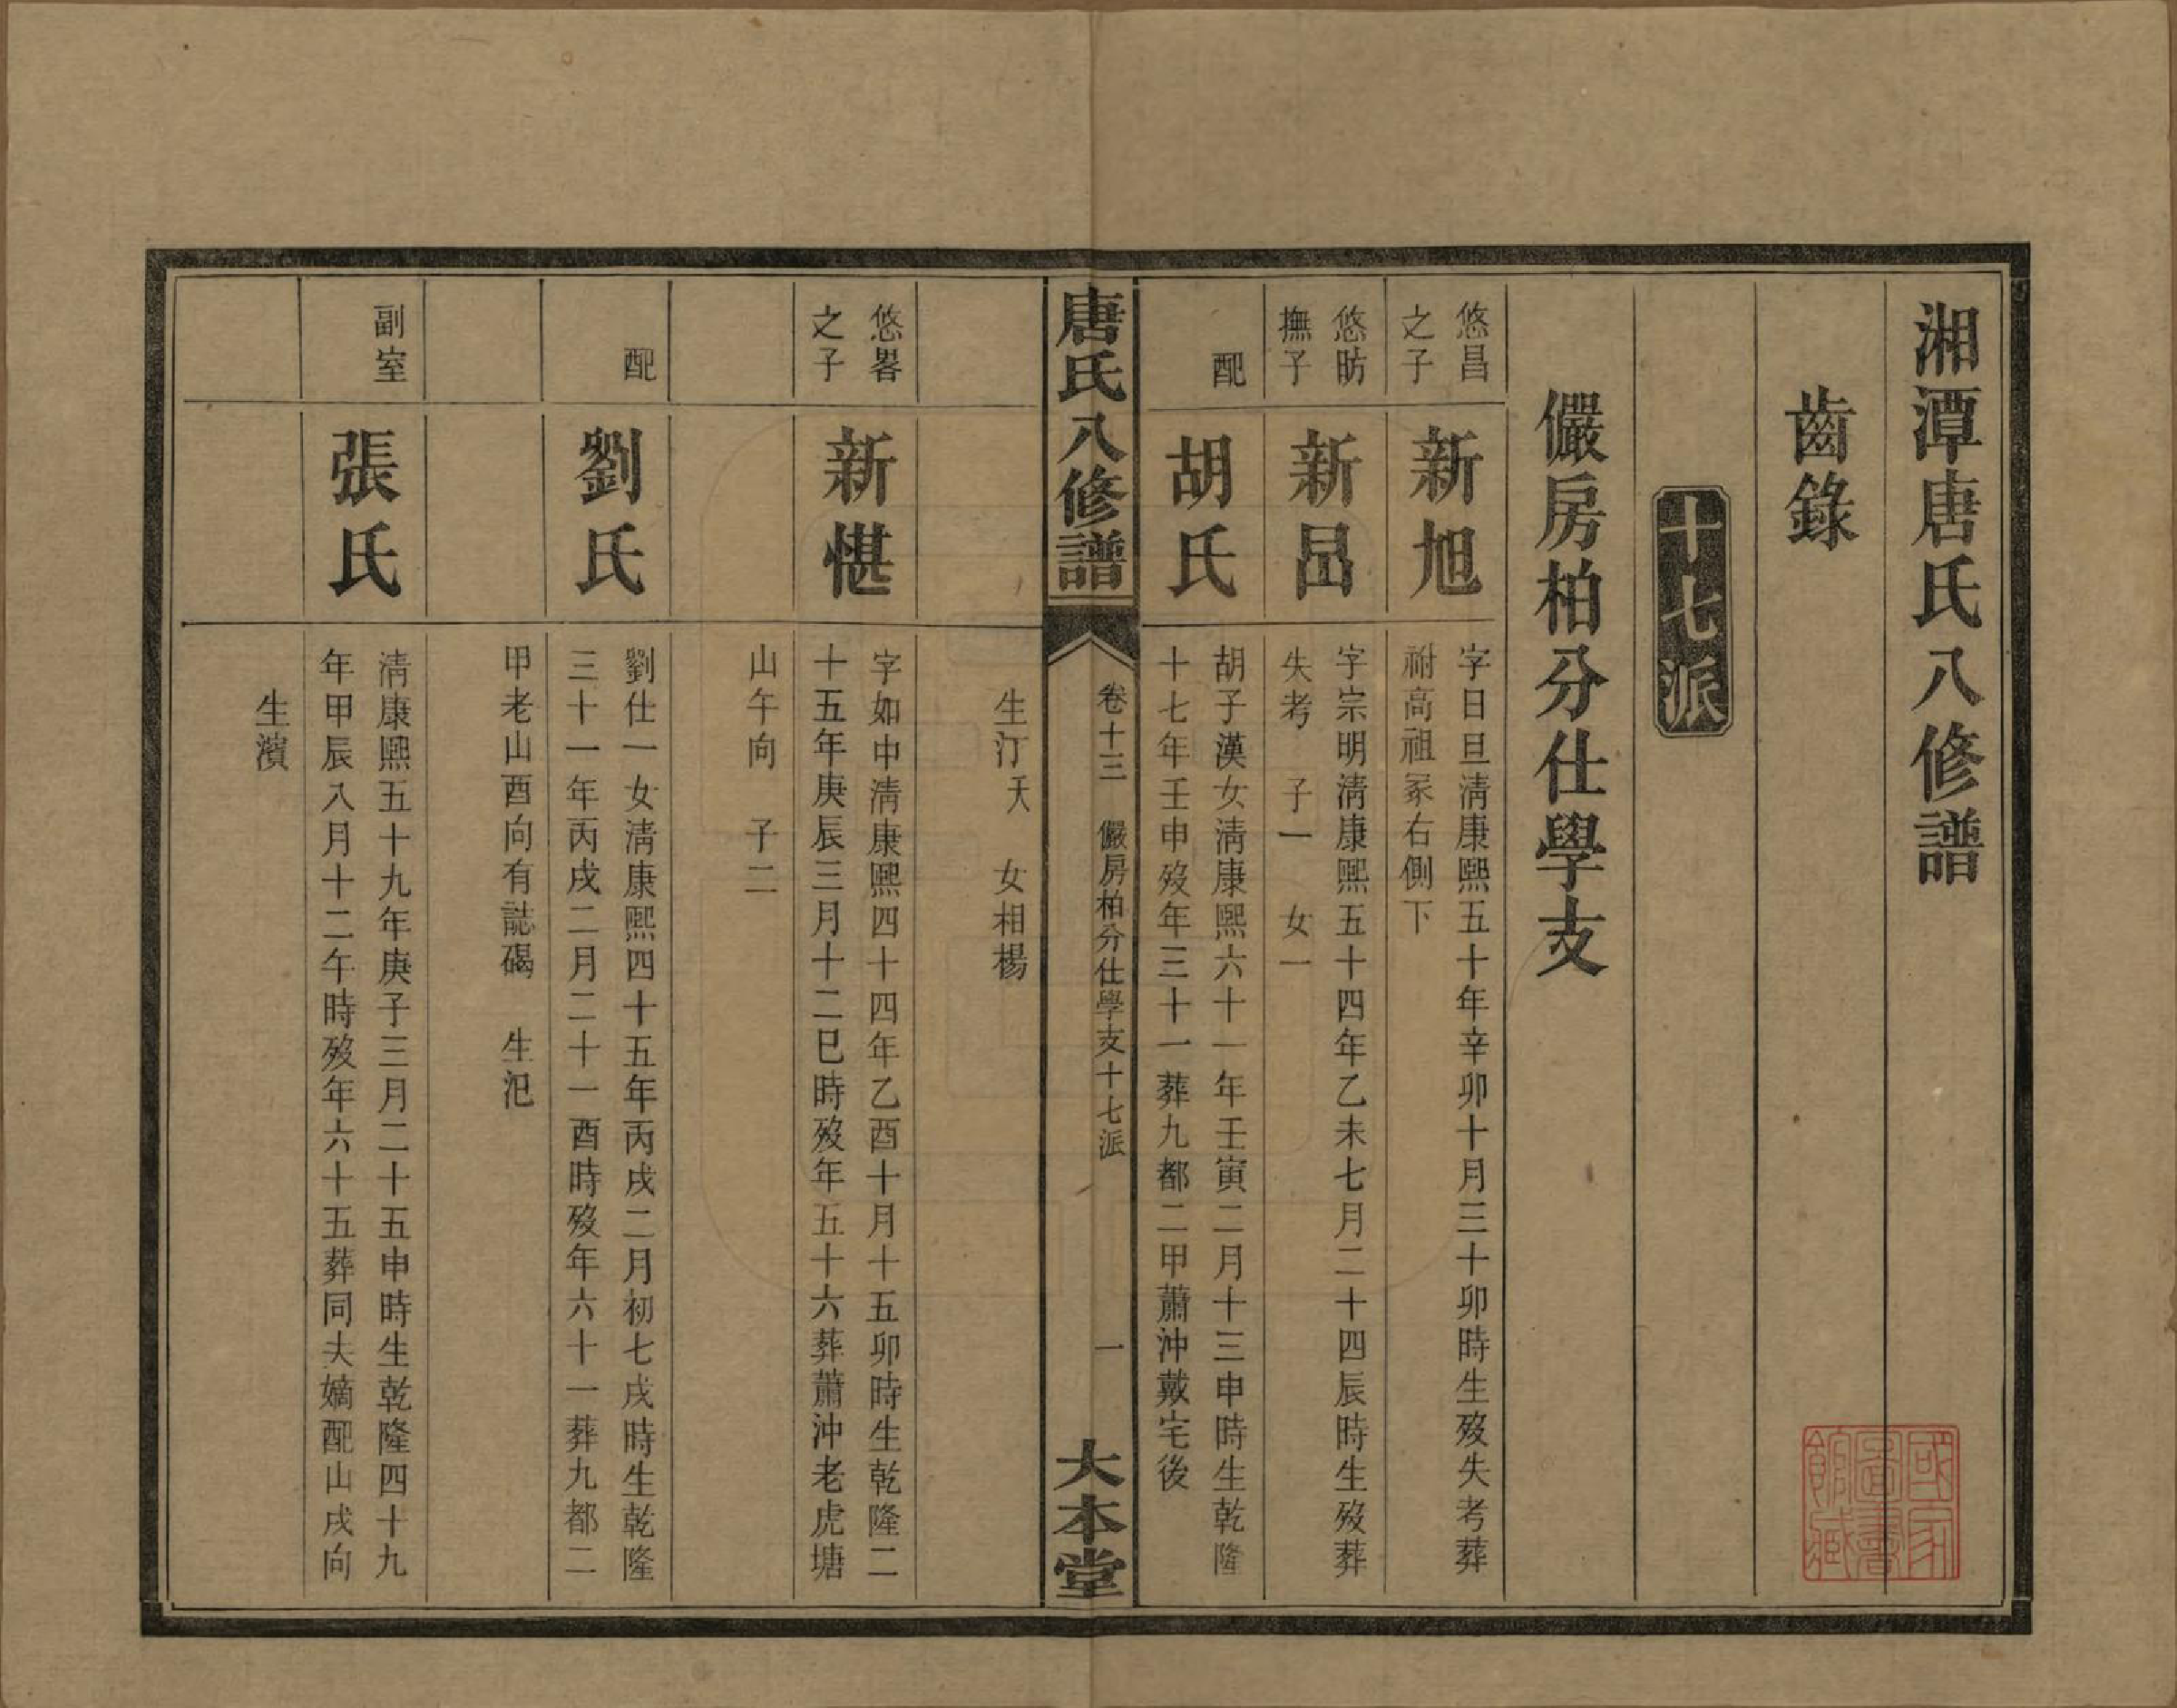 湘潭唐氏八修譜
齒錄
十七派
儼房柏分仕學支
悠昌
之子
新旭
字日旦清康熙五十年辛卯十月三十卯時生歿失考葬
祔高祖冢右側下
悠昉
撫子
新昌
字宗明清康熙五十四年乙未七月二十四辰時生歿葬
失考 子一 女一
配
胡氏
胡子漢女淸康熙六十一年壬寅二月十三申時生乾隆
十七年壬申歿年三十一葬九都二甲蕭沖戴宅後
唐氏八修譜
卷十三 儼房柏分仕學支十七派
一
大本堂
生汀夭 女相楊
悠畧
之子
新愖
字如中淸康熙四十四年乙酉十月十五卯時生乾隆二
十五年庚辰三月十二巳時歿年五十六葬蕭沖老虎塘
山午向 子二
配
劉氏
劉仕一女淸康熙四十五年丙戌二月初七戌時生乾隆
三十一年丙戌二月二十一酉時歿年六十一葬九都二
甲老山酉向有誌碣 生汜
副室
張氏
淸康熙五十九年庚子三月二十五申時生乾隆四十九
年甲辰八月十二午時歿年六十五葬同夫嫡配山戌向
生濱
國家
圖書
館藏